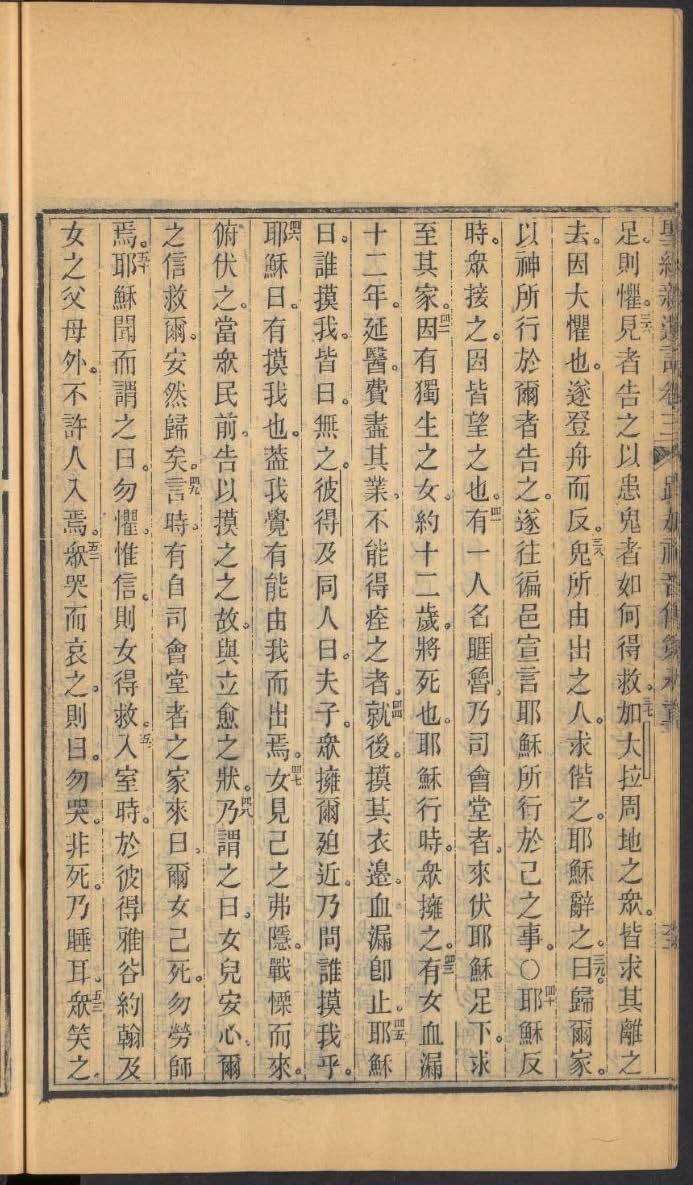 聖經新遺詔卷三 路加福音傳第八章
足。則懼。三六見者告之以患鬼者如何得救。三七加大拉周地之衆。皆求其離之
去。因大懼也。遂登舟而反。三八鬼所由出之人。求偕之。耶穌辭之。三九曰。歸爾家。
以神所行於爾者告之。遂往徧邑宣言耶穌所行於己之事。○四十耶穌反
時。衆接之。因皆望之也。四一有一人名睚魯。乃司會堂者。來伏耶穌足下。求
至其家。四二因有獨生之女。約十二歲。將死也。耶穌行時。衆擁之。四三有女血漏
十二年。延醫。費盡其業。不能得痊之者。四四就後。摸其衣邊。血漏卽止。四五耶穌
曰。誰摸我。皆曰。無之。彼得及同人曰。夫子。衆擁爾廹近。乃問誰摸我乎。
四六耶穌曰。有摸我也。葢我覺有能由我而出焉。四七女見己之弗隱。戰慄而來。
俯伏之。當衆民前。告以摸之之故。與立愈之狀。四八乃謂之曰。女兒安心。爾
之信救爾。安然歸矣。四九言時。有自司會堂者之家來曰。爾女已死。勿勞師
焉。五十耶穌聞而謂之曰。勿懼。惟信。則女得救。五一入室時。於彼得雅谷約翰及
女之父母外。不許人入焉。五二衆哭而哀之。則曰。勿哭。非死。乃睡耳。五三衆笑之。